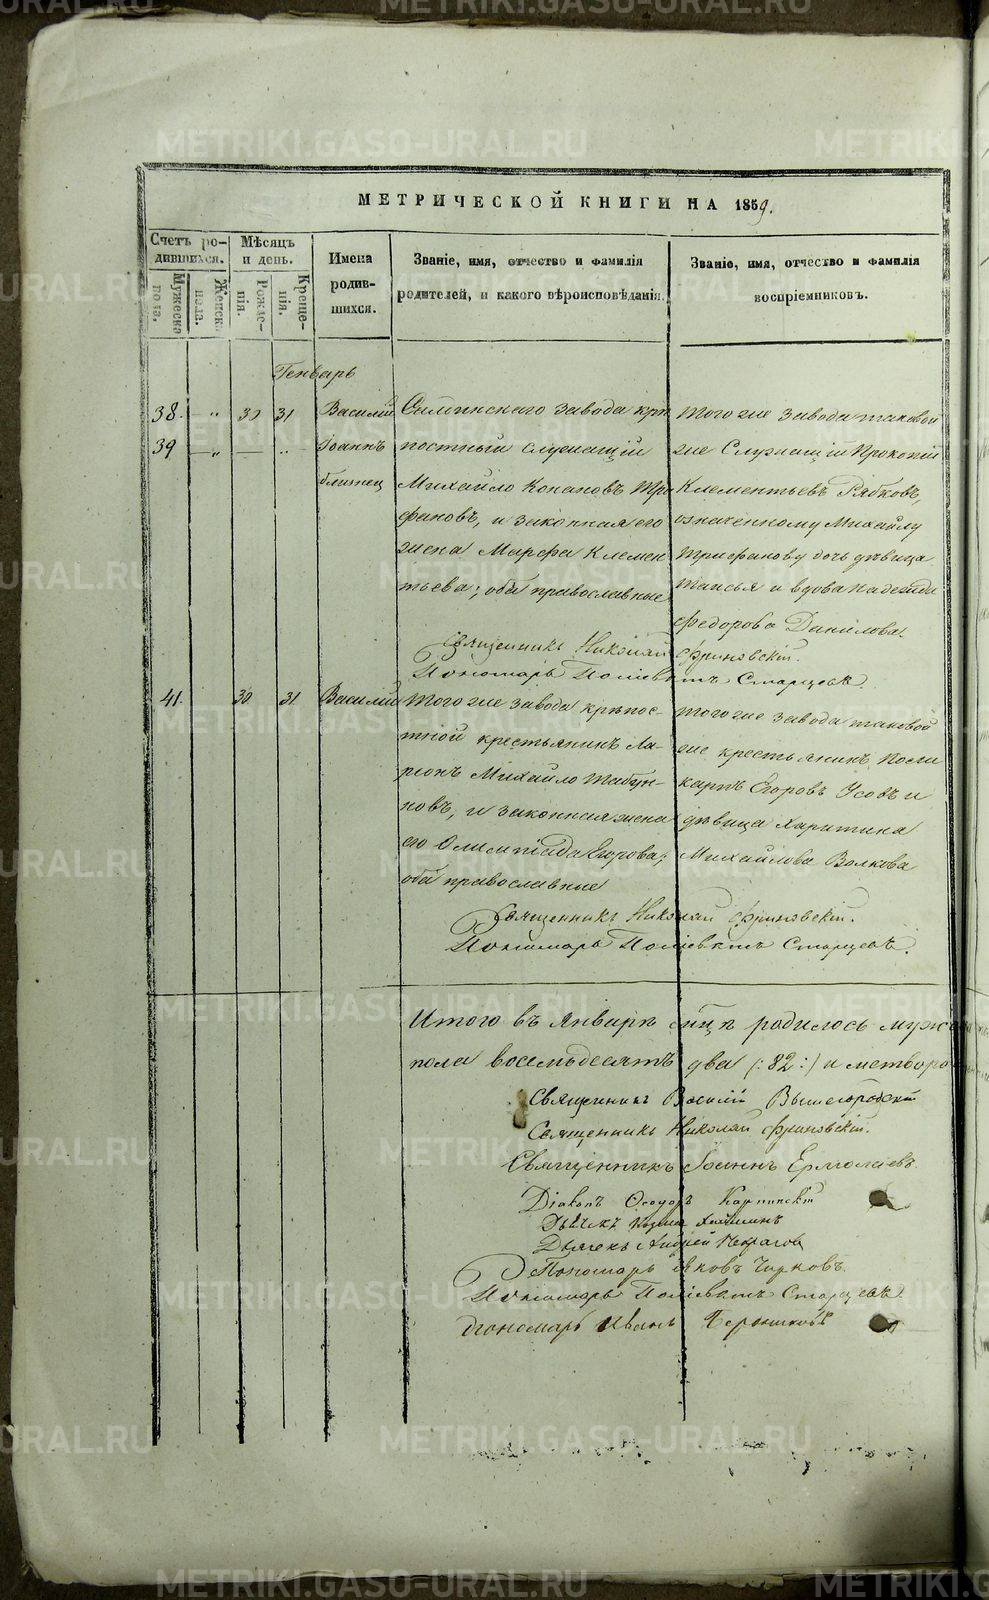 МЕТРИЧЕСКОЙ КНИГИ НА 1859.
Счетъ ро-
дившихся.
Мужеска
пола.
Женска
пола.
Мѣсяцъ
и день.
Рожде-
нія.
Креще-
нія.
Имена
родив-
шихся.
Званіе, имя, отчество и фамилія
родителей, и какого вѣроисповѣданія.
Званіе, имя, отчество и фамилія
воспріемниковъ.
Генварь
38. „ 30 31 Василій
39 „ — „ Іоаннъ
близнец
завода крѣ
постный служащій
Михайло Конановъ Три
фановъ, и законная его
жена Марфа Клемен
тьева; оба православные
того же завода таковой
же Служащій Прокопій
Клементьевъ Рябковъ,
означенному Михайлу
Трифанову дочь дѣвица
Таисья и вдова Надежда
Федорова Данилова.
Священникъ Николай Фриновскій.
Пономарь Поліевктъ Старцевъ.
41. 30 31 Василій
того же завода крѣпос-
тной крестьянинъ Ла-
ріонъ Михайло Табун-
новъ, и законная жена
его Олимпіада Егорова;
оба православные
того же завода таковой
же крестьянинъ Поли
карпъ Егоровъ Усовъ и
дѣвица Харитина
Михайлова Волкова
Священникъ Николай Фриновскій.
Пономарь Поліевктъ Старцевъ.
Итого въ Январѣ м-цѣ родилось муж
пола восемьдесятъ два (:82:) и
Священникъ Василій Вышегородскій
Священникъ Николай Фриновскій.
Священникъ Іоаннъ Ермолаевъ.
Діаконъ Ѳеодоръ Карпинскій
Дьячекъ Козма
Дьячекъ Андрей Некрасов
Пономарь Яковъ Чирковъ.
Пономарь Поліевктъ Старцевъ.
Пономарь Иванъ
METRIKI.GASO-URAL.RU